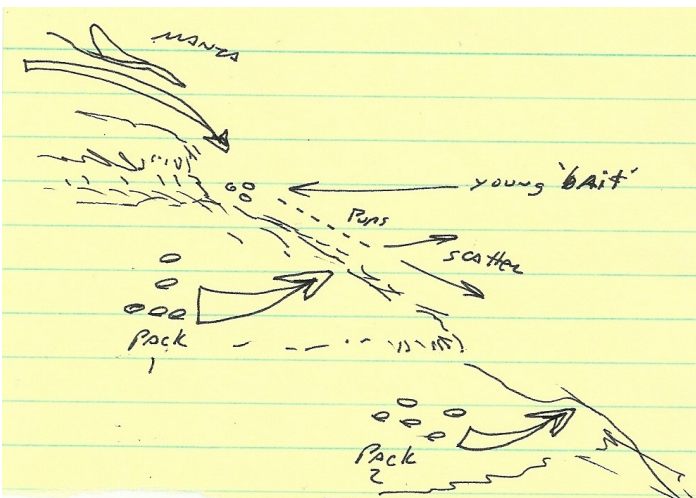 MANTA
young "bait"
Pups
scatter
Pack
1
Pack
2